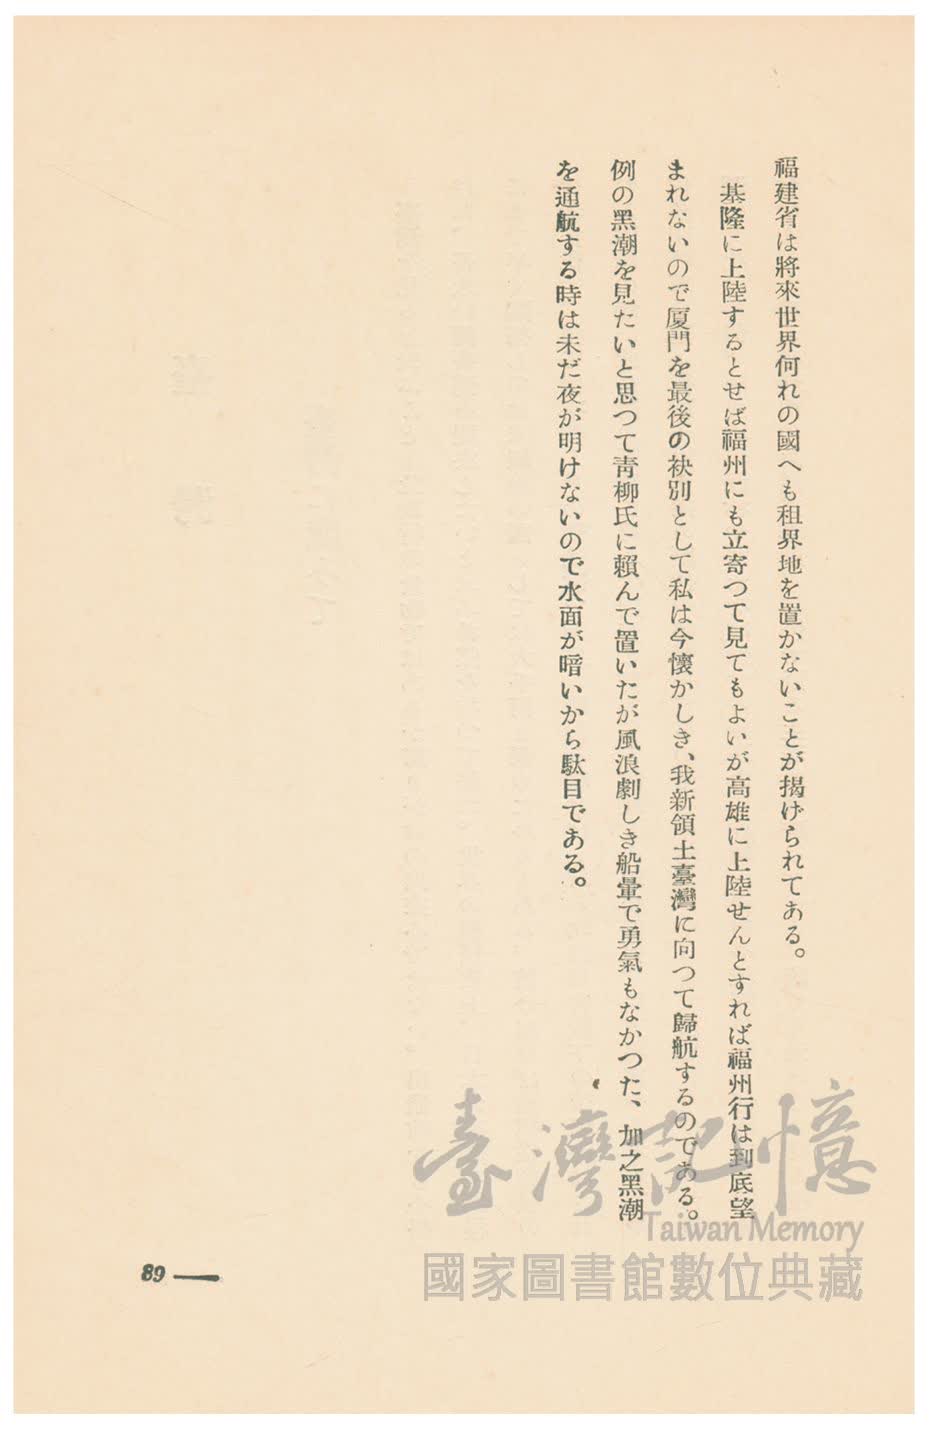 福建省は將來世界何れの國へも租界地を置かないことが揭げられてある。
基隆に上陸するとせば福州にも立寄つて見てもよいが高雄に上陸せんとすれば福州行は到底望
まれないので厦門を最後の袂別として私は今懷かしき、我新領土臺灣に向つて歸航するのである。
例の黑潮を見たいと思つて靑柳氏に賴んで置いたが風浪劇しき船暈で勇氣もなかつた、加之黑潮
を通航する時は未だ夜が明けないので水面が暗いから駄目である。
89
臺灣記憶
Taiwan Memory
國家圖書館數位典藏